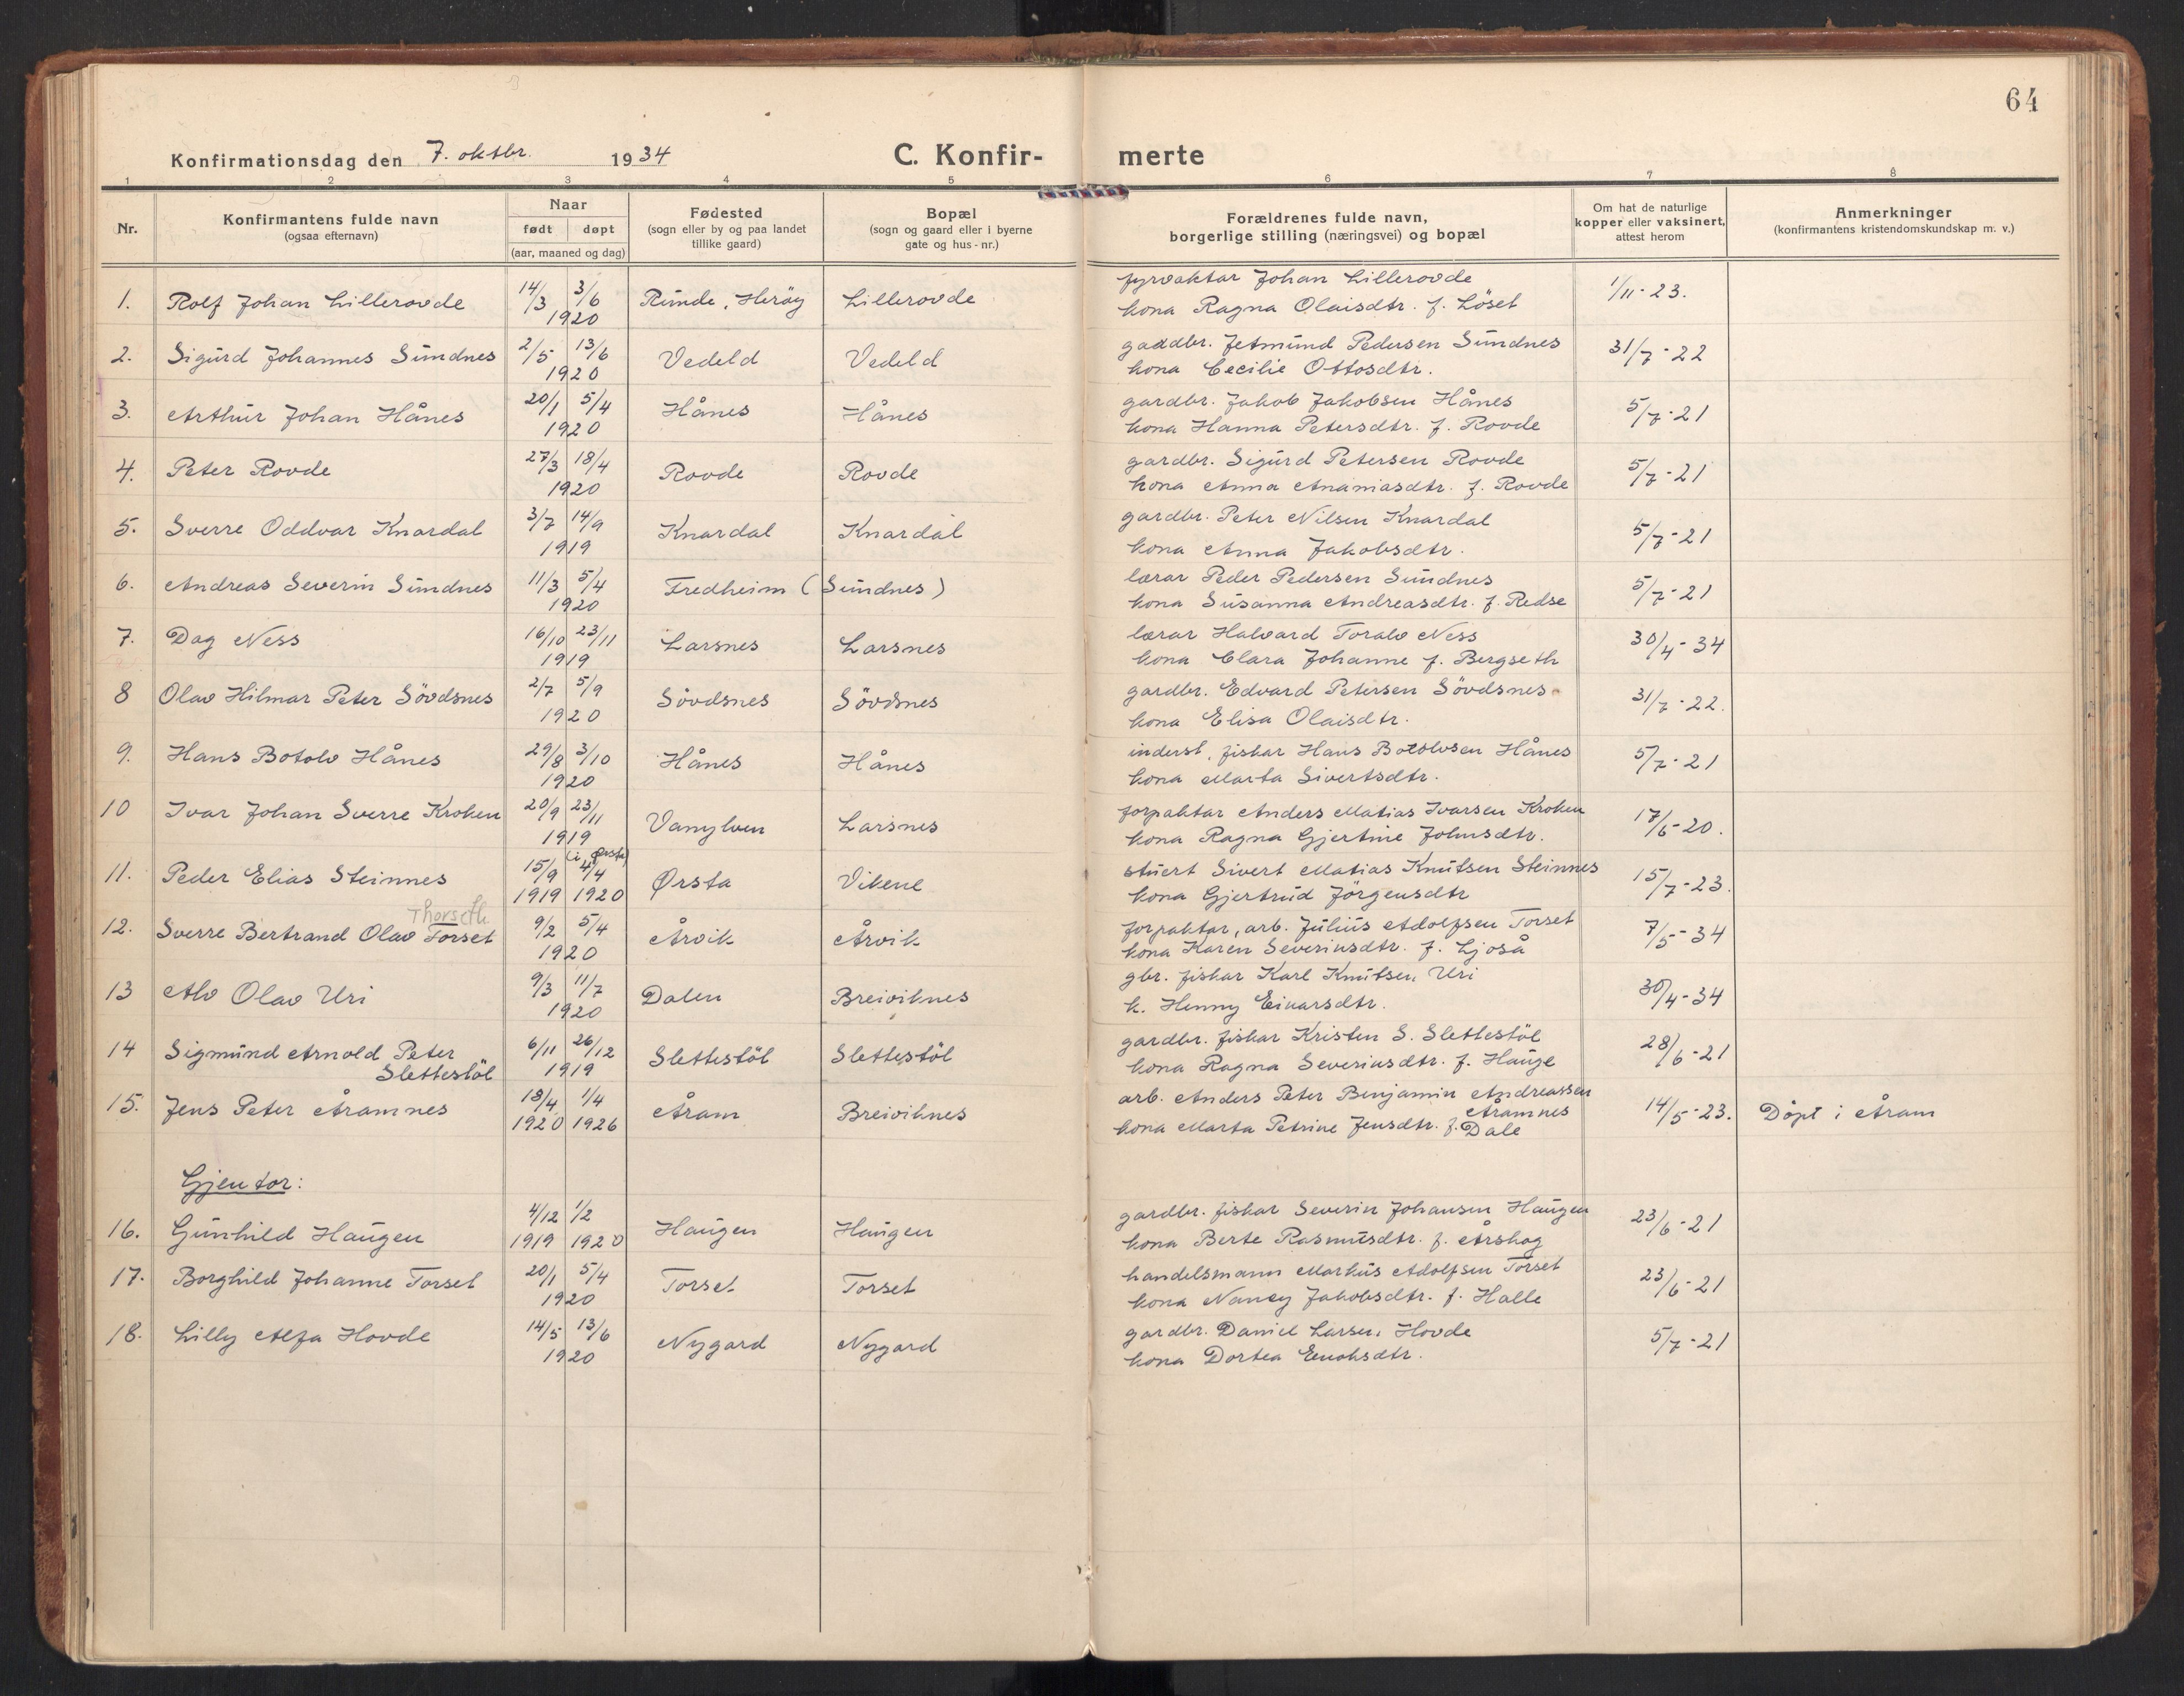 64
Konfirmationsdag den 7. oktbr. 1934 C. Konfir- merte
1 2 3 4 5 6 7 8
Nr. Konfirmantens fulde navn (ogsaa efternavn) Naar født døpt (aar, maaned og dag) Fødested (sogn eller by og paa landet tillike gaard) Bopæl (sogn og gaard eller i byerne gate og hus-nr.) Forældrenes fulde navn, borgerlige stilling (næringsvei) og bopæl Om hat de naturlige kopper eller vaksinert, attest herom Anmerkninger (konfirmantens kristendomskundskap m. v.)
1. Rolf Johan Lillerovde 14/3 3/6 1920 Runde, Herøy Lillerovde fyrvaktar Johan Lillerovde 1/11-23.
kona Ragna Olaisdtr. f. Löset
2. Sigurd Johannes Sundnes 2/5 13/6 1920 Vedeld Vedeld gaddbr. Jetmund Pedersen Sundnes 31/7-22
kona Cecilie Ottosdtr.
3. Arthur Johan Hånes 20/1 5/4 1920 Hånes Hånes gardbr. Jakob Jakobsen Hånes 5/7-21
kona Hanna Petersdtr. f. Rovde
4. Peter Rovde 27/3 18/4 1920 Rovde Rovde gardbr. Sigurd Petersen Rovde 5/7-21
kona Anna Ananiasdtr. f. Rovde
5. Sverre Oddvar Knardal 3/7 14/9 1919 Knardal Knardal gardbr. Peter Nilsen Knardal 5/7-21
kona Anna Jakobsdtr.
6. Andreas Severin Sundnes 11/3 5/4 1920 Fredheim (Sundnes) lærar Peder Pedersen Sundnes 5/7-21
kona Susanna Andreasdtr. f. Redse
7. Dag Ness 16/10 23/11 1919 Larsnes Larsnes lærar Halvard Toralv Ness 30/4-34
kona Clara Johanne f. Bergseth
8 Olav Hilmar Peter Sövdsnes 2/7 5/9 1920 Sövdsnes Sövdsnes gardbr. Edvard Petersen Sövdsnes 31/7-22.
kona Elisa Olaisdtr.
9. Hans Botolv Hånes 29/8 3/10 1920 Hånes Hånes inderst, fiskar Hans Botolvsen Hånes 5/7-21
kona Marta Sivertsdtr.
10 Ivar Johan Sverre Kroken 20/9 23/11 1919 Vanylven Larsnes forpaktar Anders Matias Ivarsen Kroken 17/5-20.
kona Ragna Gjertine Johnsdtr.
11. Peder Elias Steinnes 15/9 1919 (i Ørsta) 4/4 1920 Ørsta Vikene stuert Sivert Matias Knutsen Steinnes 15/7-23.
kona Gjertrud Jörgensdtr
Thorseth
12. Sverre Bertrand Olav Torset 9/2 5/4 1920 Årvik Årvik forpaktar, arb. Julius Adolfsen Torset 7/5-34
kona Karen Severinsdtr. f. Ljoså
13 Alv Olav Uri 9/3 11/7 1920 Dalen Breiviknes gbr. fiskar Karl Knutsen Uri 30/4-34
k. Henny Einarsdtr.
14 Sigmund Arnold Peter 6/11 26/12 1919 Slettestöl Slettestöl gardbr. fiskar Kristen S. Slettestöl 28/6-21
Slettestöl kona Ragna Severinsdtr. f. Hauge
15. Jens Peter Åramnes 18/4 1920 1/4 1926 Åram Breiviknes arb. Anders Peter Benjamin Andreassen Åramnes 14/5-23. Döpt i Åram
kona Marta Petrine Jensdtr. f. Dale
Gjentor:
16. Gunhild Haugen 4/12 1919 1/2 1920 Haugen Haugen gardbr. fiskar Severin Johansen Haugen 23/6-21
kona Berte Rasmusdtr. f. Årskog
17. Borghild Johanne Torset 20/1 5/4 1920 Torset Torset handelsmann Markus Adolfsen Torset 23/6-21
kona Nancy Jakobsdtr. f. Halle
18. Lilly Alfa Hovde 14/5 13/6 1920 Nygard Nygard gardbr. Daniel Larsen Hovde 5/7-21
kona Dortea Enoksdtr.